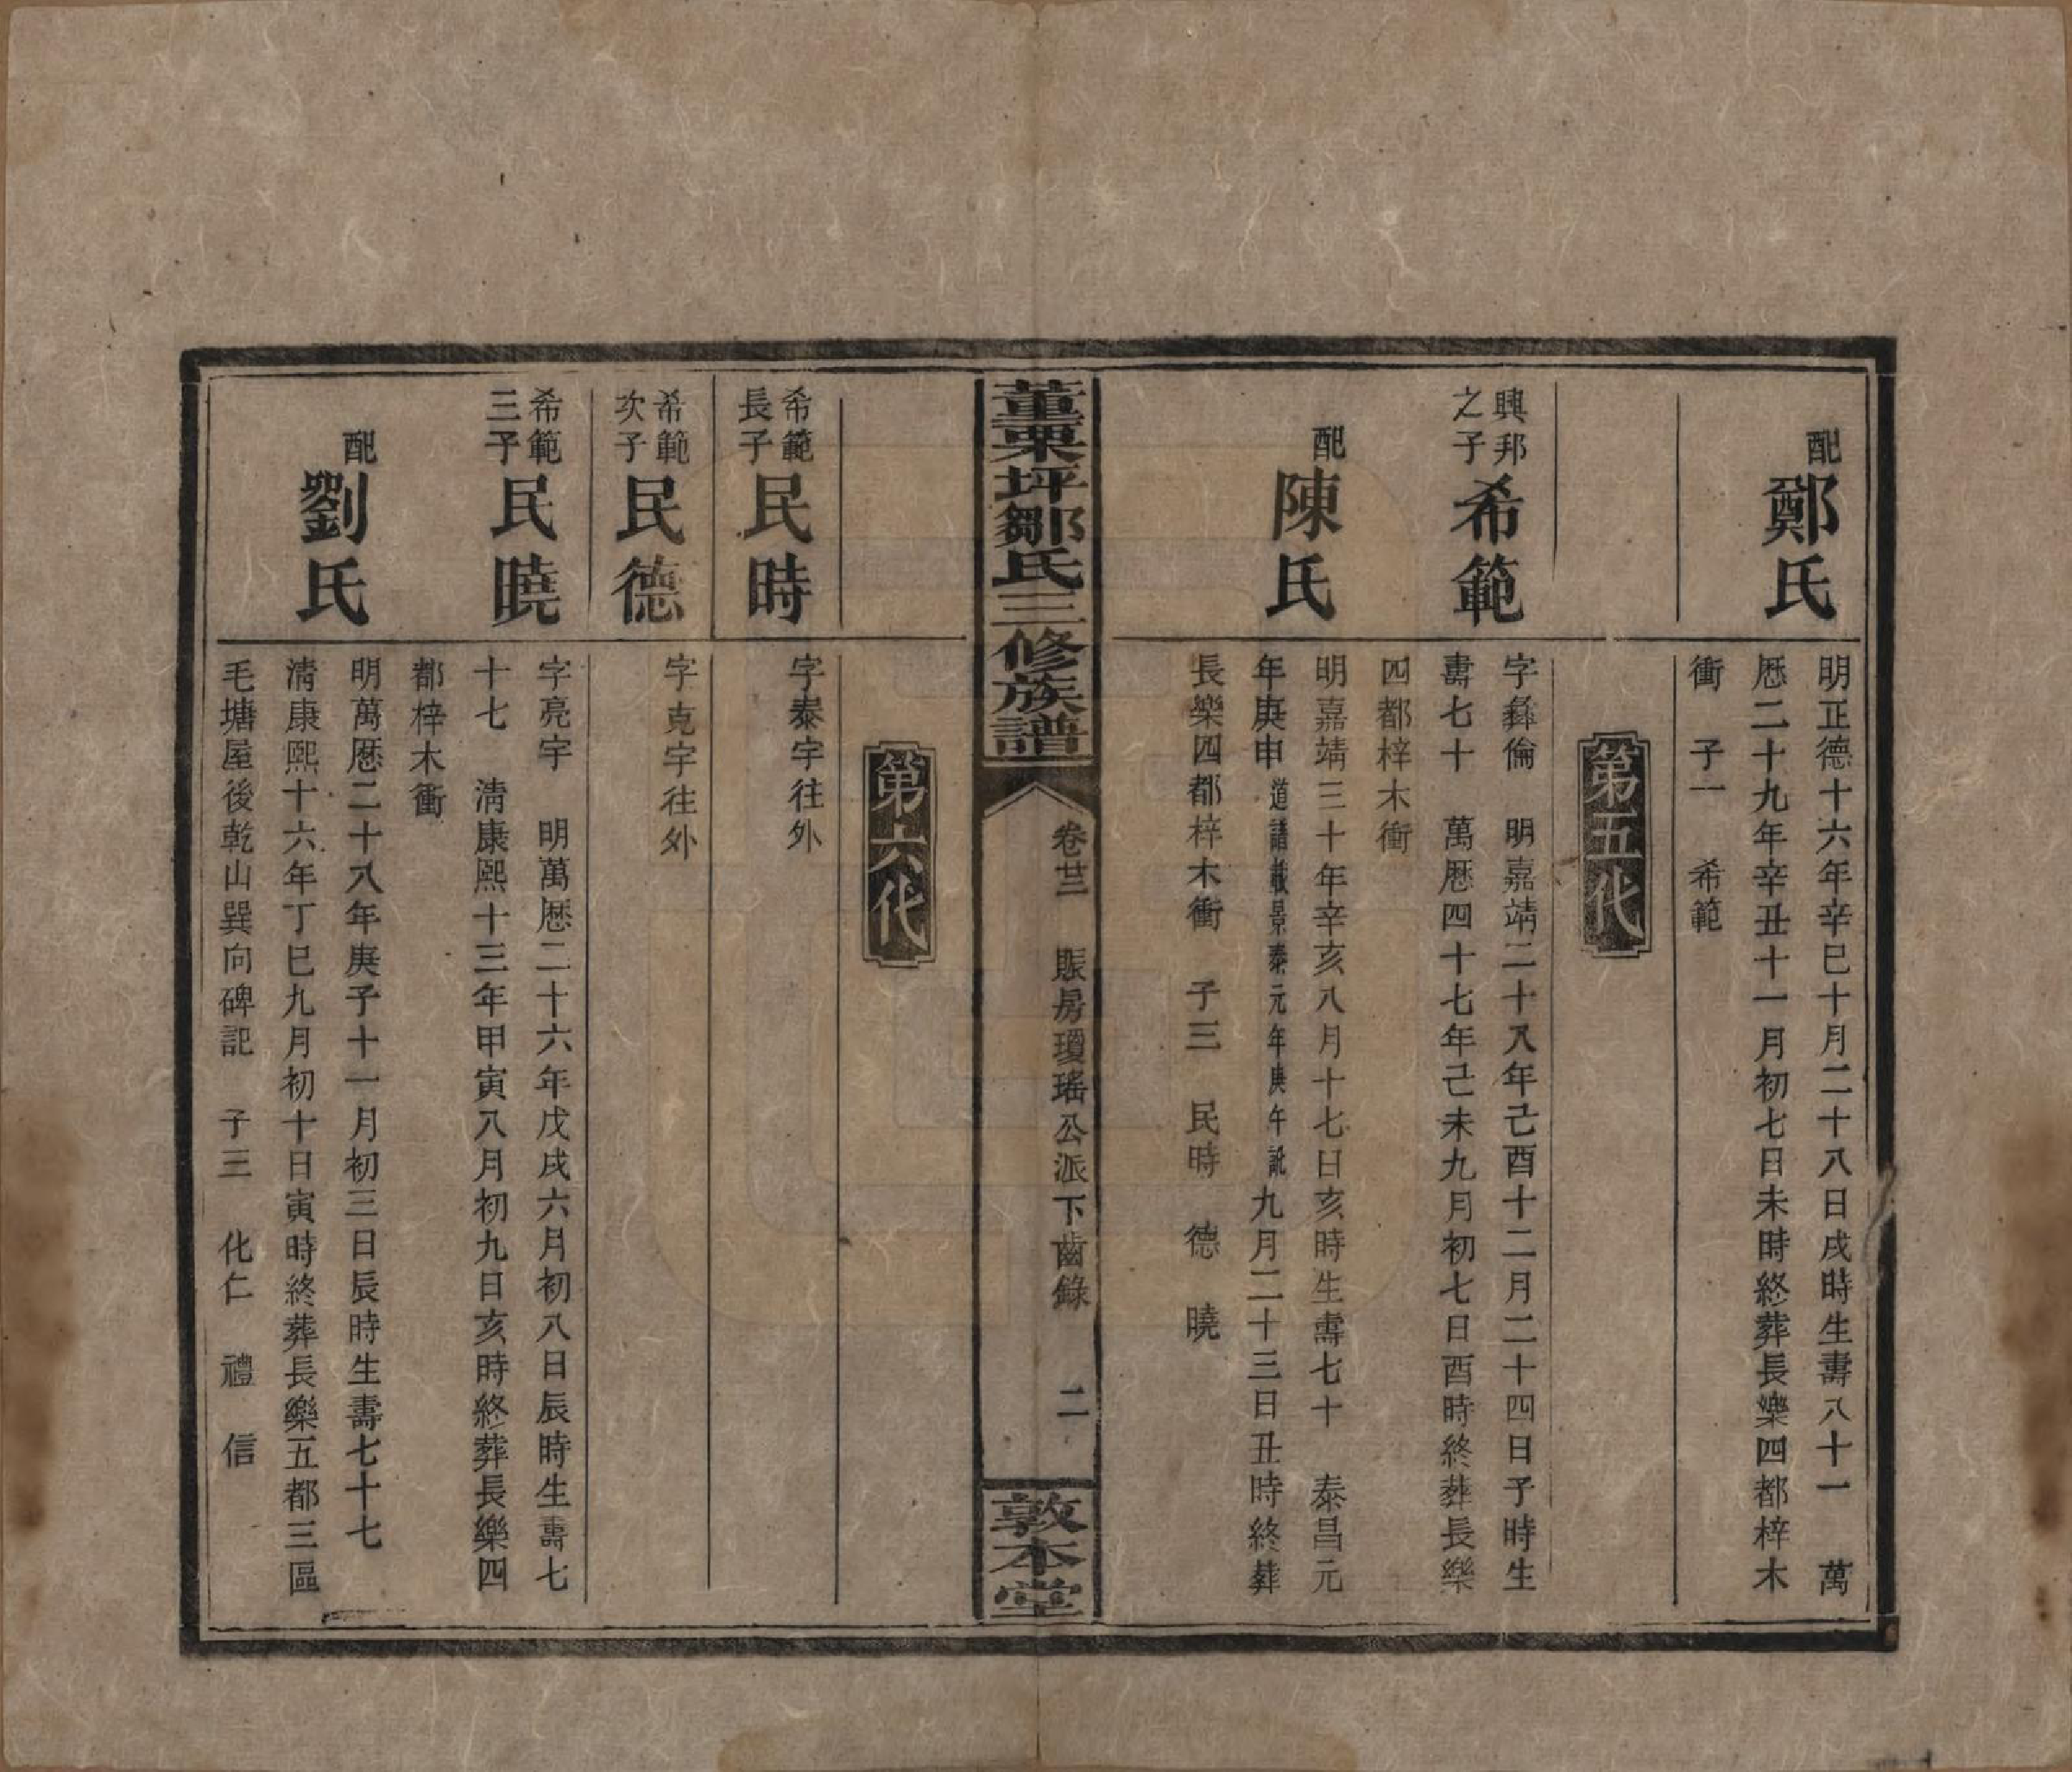 配
鄭氏
明正德十六年辛巳十月二十八日戌時生壽八十一　萬
厯二十九年辛丑十一月初七日未時終葬長樂四都梓木
衝　子一　希範
第五代
興邦
之子
希範
字彝倫　明嘉靖二十八年己酉十二月二十四日子時生
壽七十　萬厯四十七年己未九月初七日酉時終葬長樂
四都梓木衝
配
陳氏
明嘉靖三十年辛亥八月十七日亥時生壽七十　泰昌元
年庚申道譜載景泰元年庚午訛九月二十三日丑時終葬
長樂四都梓木衝　子三　民時　德　曉
董栗坪鄒氏三修族譜
卷廿三　賑房瓊瑤公派下齒錄　二
敦本堂
第六代
希範
長子
民時
字泰宇往外
希範
次子
民德
字克宇往外
希範
三子
民曉
字亮宇　明萬厯二十六年戊戌六月初八日辰時生壽七
十七　淸康熙十三年甲寅八月初九日亥時終葬長樂四
都梓木衝
配
劉氏
明萬厯二十八年庚子十一月初三日辰時生壽七十七
淸康熙十六年丁巳九月初十日寅時終葬長樂五都三區
毛塘屋後乾山巽向碑記　子三　化仁　禮　信